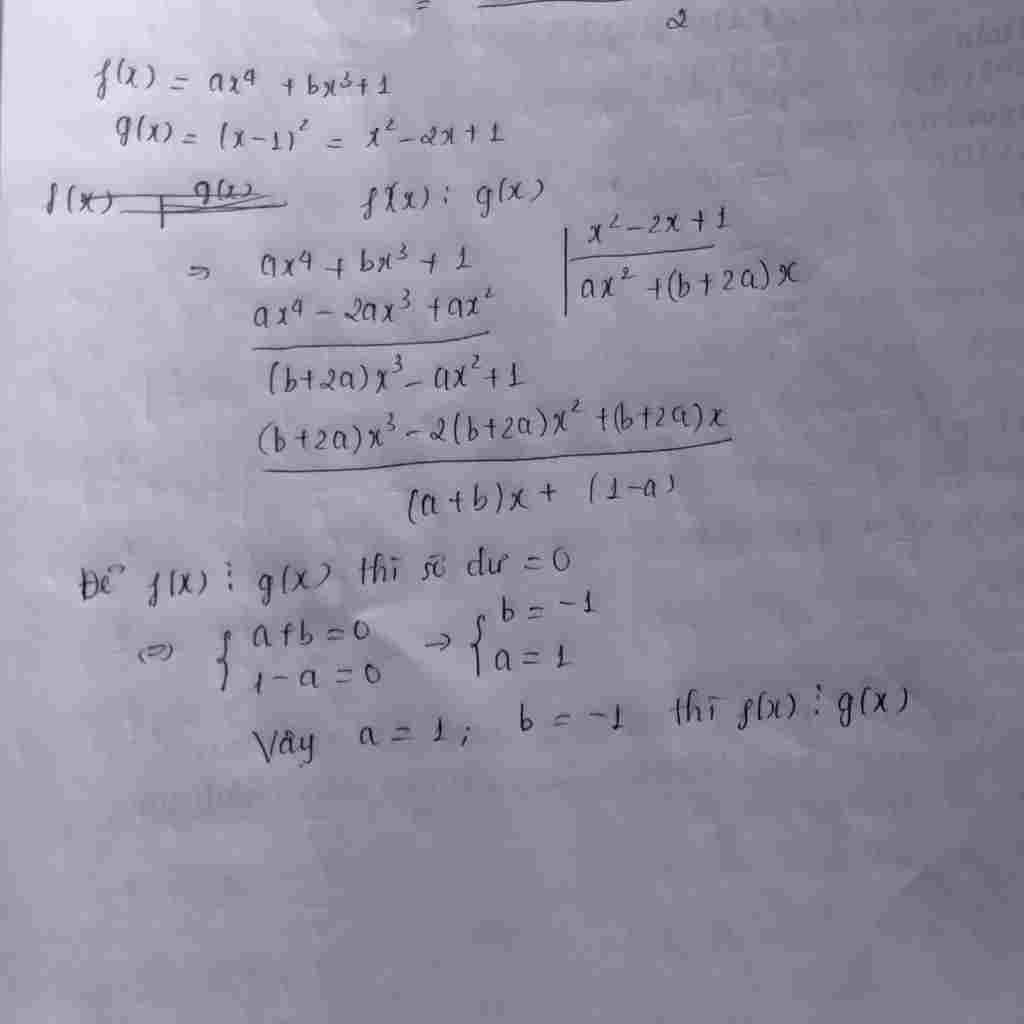 = 2
f(x) = ax⁴ + bx³ + 1
g(x) = (x-1)² = x² - 2x + 1
f(x) g(x) f(x) : g(x)
=> ax⁴ + bx³ + 1 x² - 2x + 1
ax⁴ - 2ax³ + ax² ax² + (b+2a)x
(b+2a)x³ - ax² + 1
(b+2a)x³ - 2(b+2a)x² + (b+2a)x
(a+b)x + (1-a)
Để f(x) ⋮ g(x) thì số dư = 0
<=> { a+b = 0 → { b = -1
1-a = 0 a = 1
Vậy a = 1; b = -1 thì f(x) ⋮ g(x)